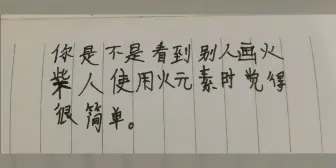 你是不是看到别人画火
柴人使用火元素时觉得
很简单。